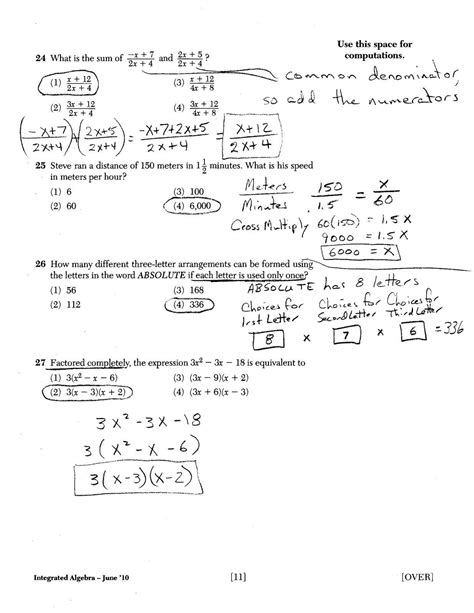 Use this space for
computations.
24 What is the sum of (-x + 7)/(2x + 4) and (2x + 5)/(2x + 4)?
(1) (x + 12)/(2x + 4) (3) (x + 12)/(4x + 8)
(2) (3x + 12)/(2x + 4) (4) (3x + 12)/(4x + 8)
common denominator,
so add the numerators
(-x+7)/(2x+4) + (2x+5)/(2x+4) = (-x+7+2x+5)/(2x+4) = (x+12)/(2x+4)
25 Steve ran a distance of 150 meters in 1 1/2 minutes. What is his speed
in meters per hour?
(1) 6 (3) 100
(2) 60 (4) 6,000
Meters/Minutes 150/1.5 = x/60
Cross Multiply 60(150) = 1.5 x
9000 = 1.5 x
6000 = x
26 How many different three-letter arrangements can be formed using
the letters in the word ABSOLUTE if each letter is used only once?
(1) 56 (3) 168
(2) 112 (4) 336
ABSOLUTE has 8 letters
Choices for 1rst Letter Choices for Second Letter Choices for Third Letter
8 x 7 x 6 = 336
27 Factored completely, the expression 3x² − 3x − 18 is equivalent to
(1) 3(x² − x − 6) (3) (3x − 9)(x + 2)
(2) 3(x − 3)(x + 2) (4) (3x + 6)(x − 3)
3x² -3x -18
3(x² - x - 6)
3(x-3)(x-2)
Integrated Algebra – June '10 [11] [OVER]